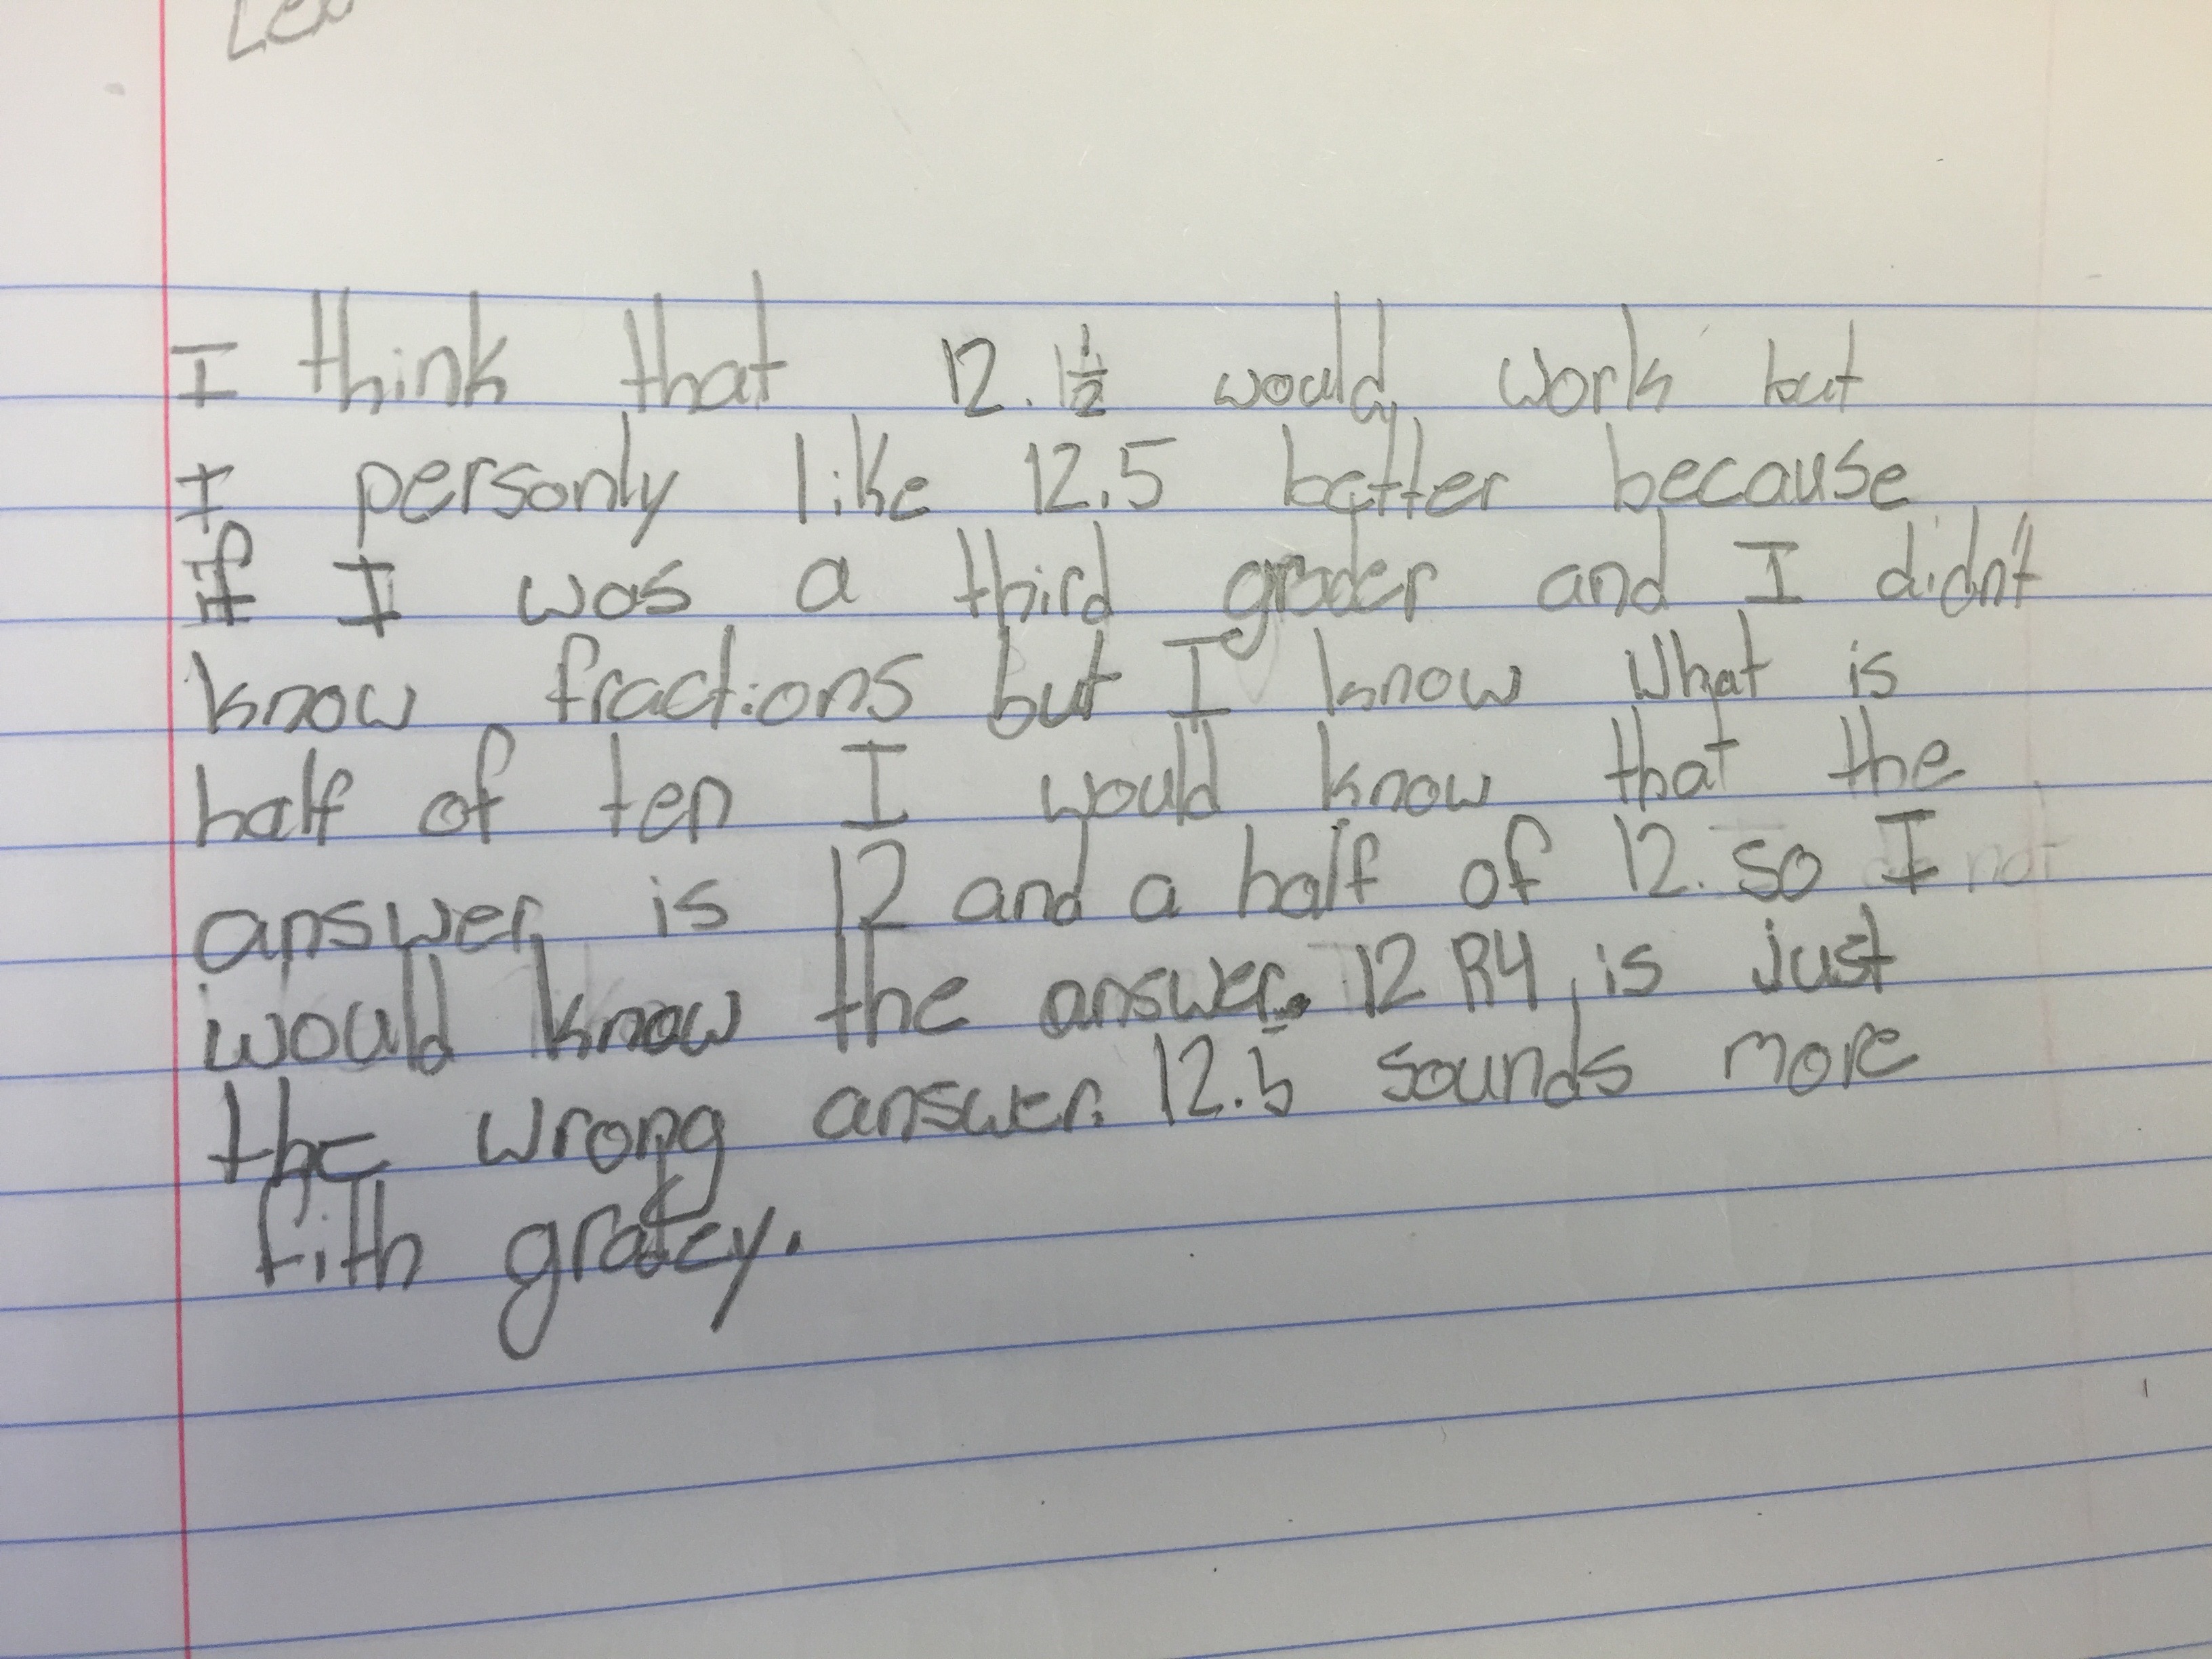 I think that 12. 1 1/2 would work but
I personly like 12.5 better because
if I was a third grader and I didn't
know fractions but I know what is
half of ten I would know that the
answer is 12 and a half of 12. so I
would know the answer. 12 R4 is just
the wrong answer. 12.5 sounds more
fith gratey.